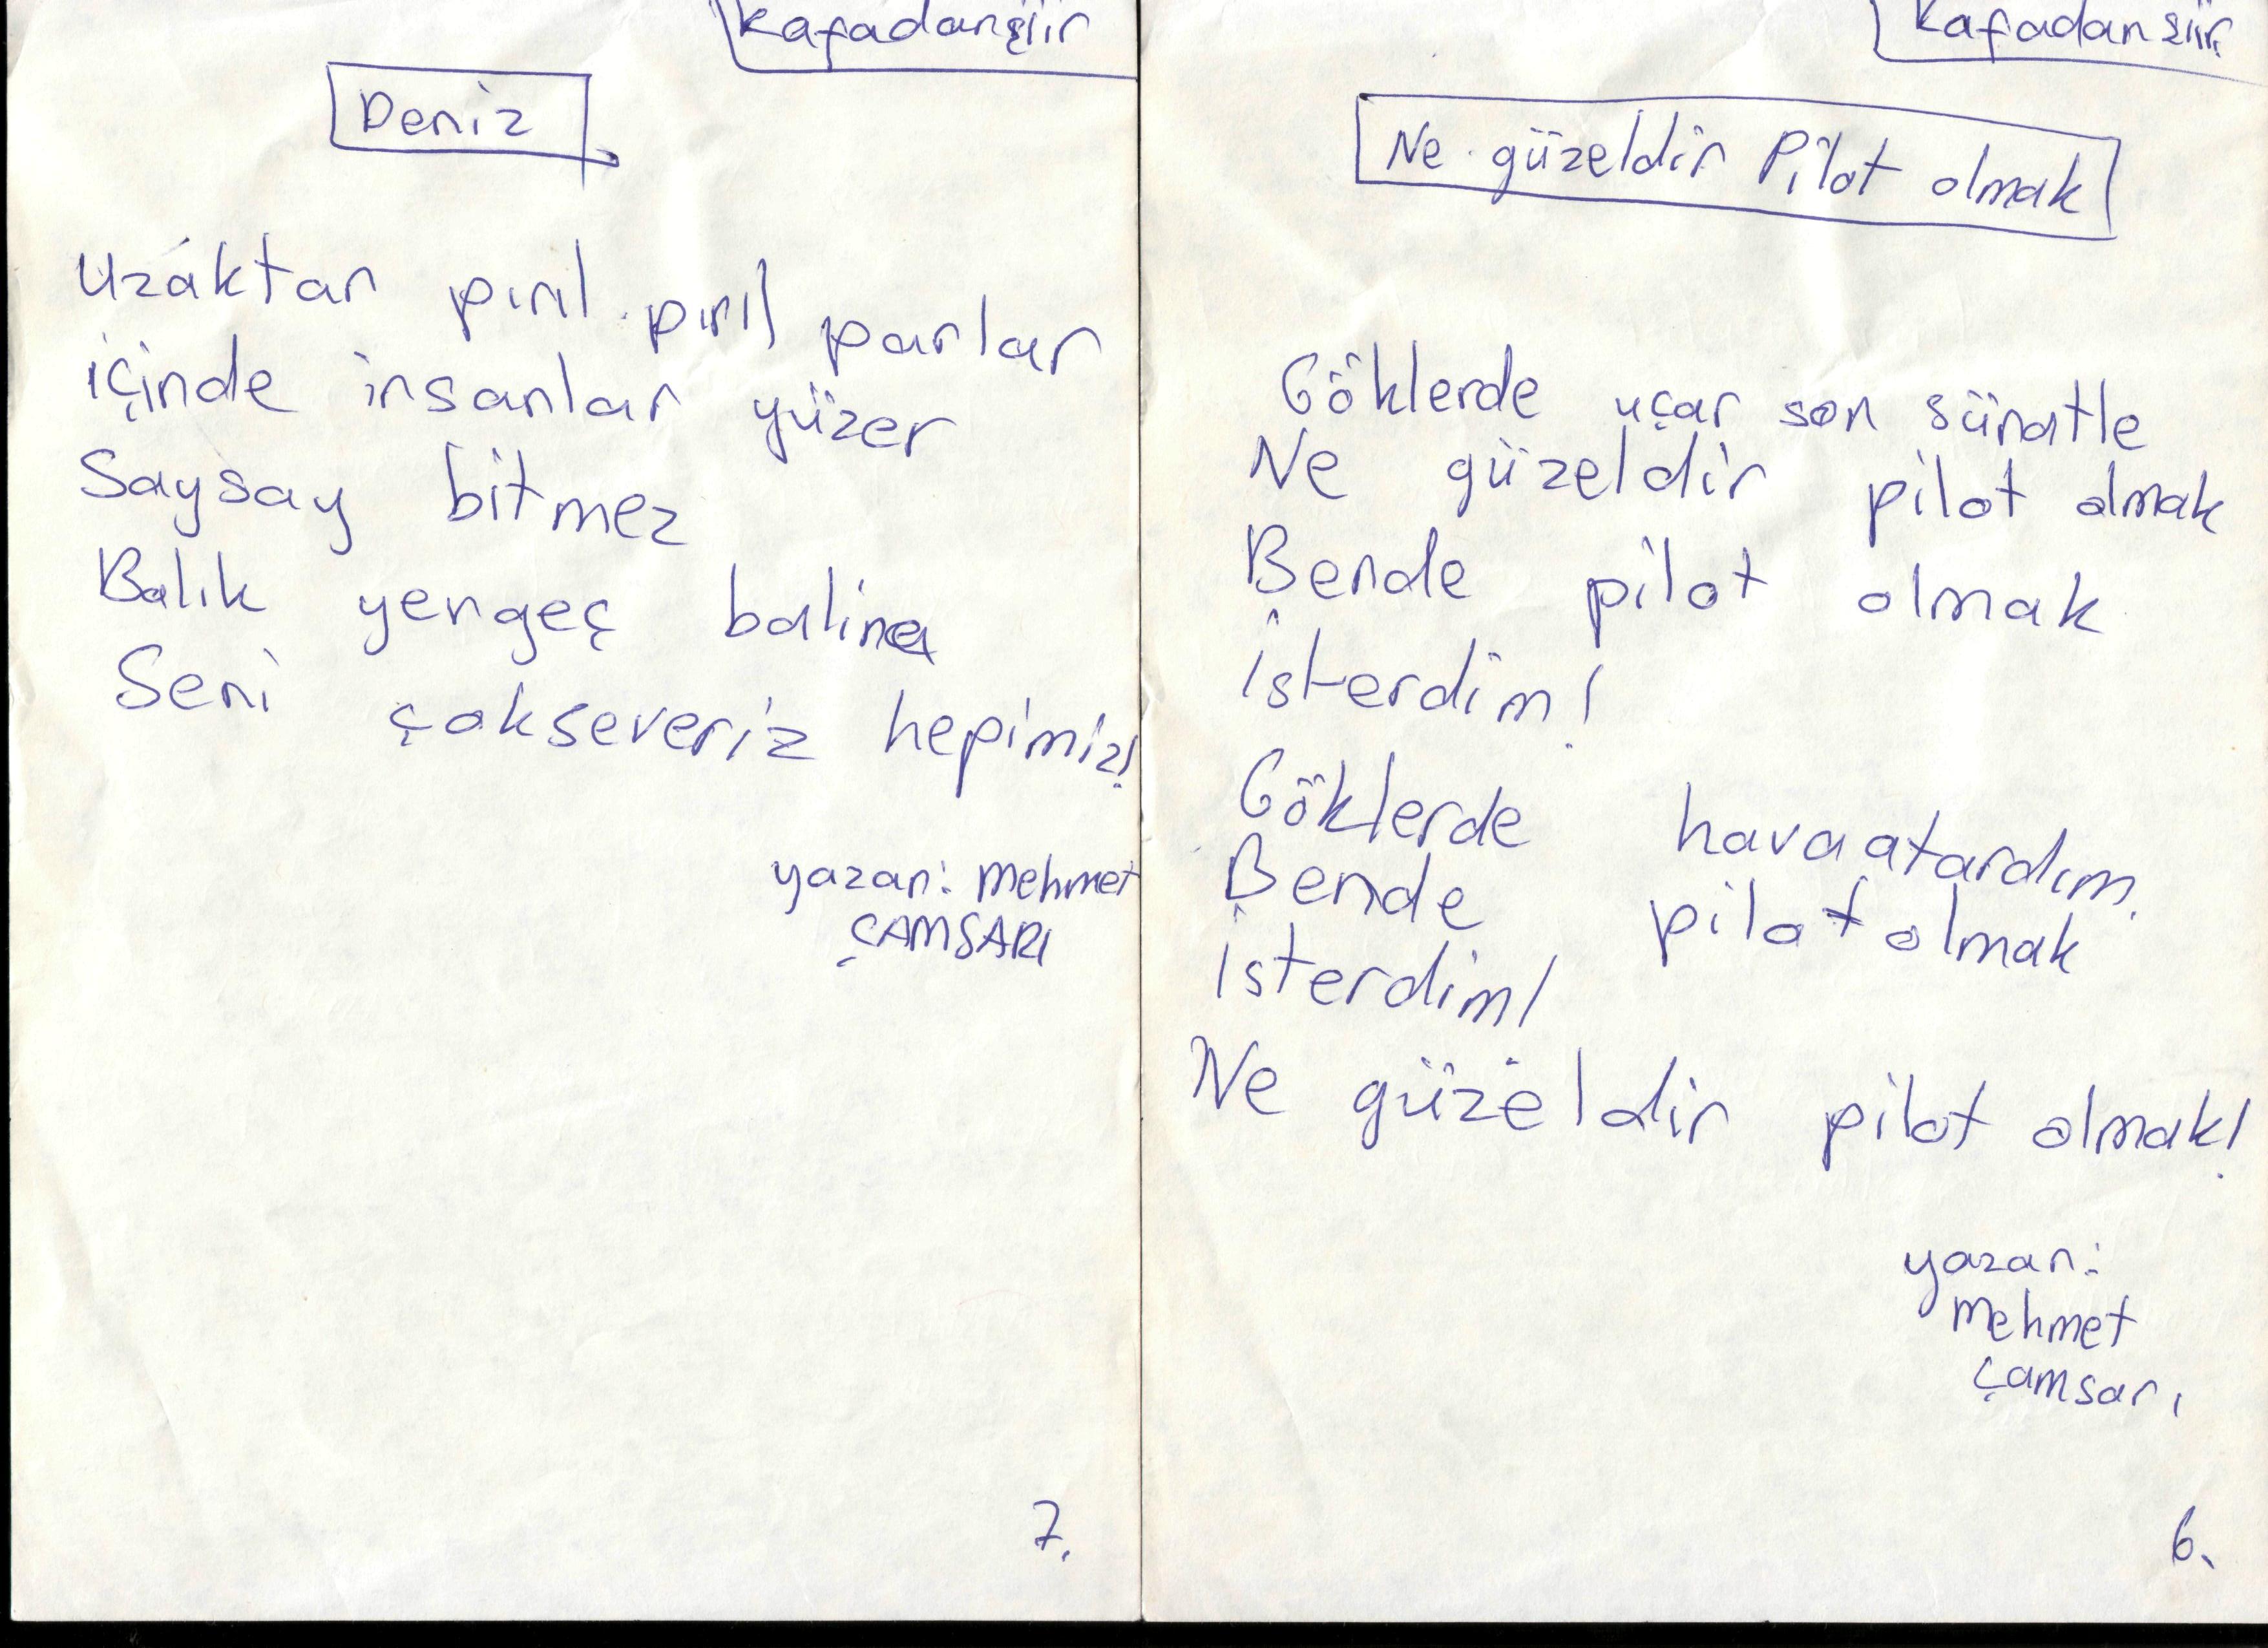 Kafadanşiir
Deniz
Uzaktan pırıl pırıl parlar
içinde insanlar yüzer
Saysay bitmez
Balık yengeç balina
Seni çokseveriz hepimiz!
yazan: Mehmet
ÇAMSARI
7.
Kafadanşiir
Ne güzeldir Pilot olmak
Göklerde uçar son süratle
Ne güzeldir pilot olmak
Bende pilot olmak
isterdim!
Göklerde havaatardım.
Bende pilot olmak
isterdim!
Ne güzeldir pilot olmak!
yazan:
Mehmet
Çamsarı
6.